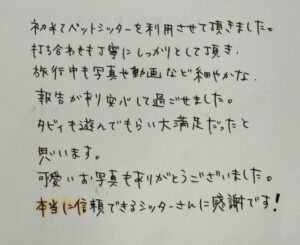 初めてペットシッターを利用させて頂きました。
打ち合わせも丁寧にしっかりとして頂き、
旅行中も写真や動画など細やかな
報告が有り安心して過ごせました。
タビィも遊んでもらい大満足だったと
思います。
可愛いお写真も有りがとうございました。
本当に信頼できるシッターさんに感謝です!